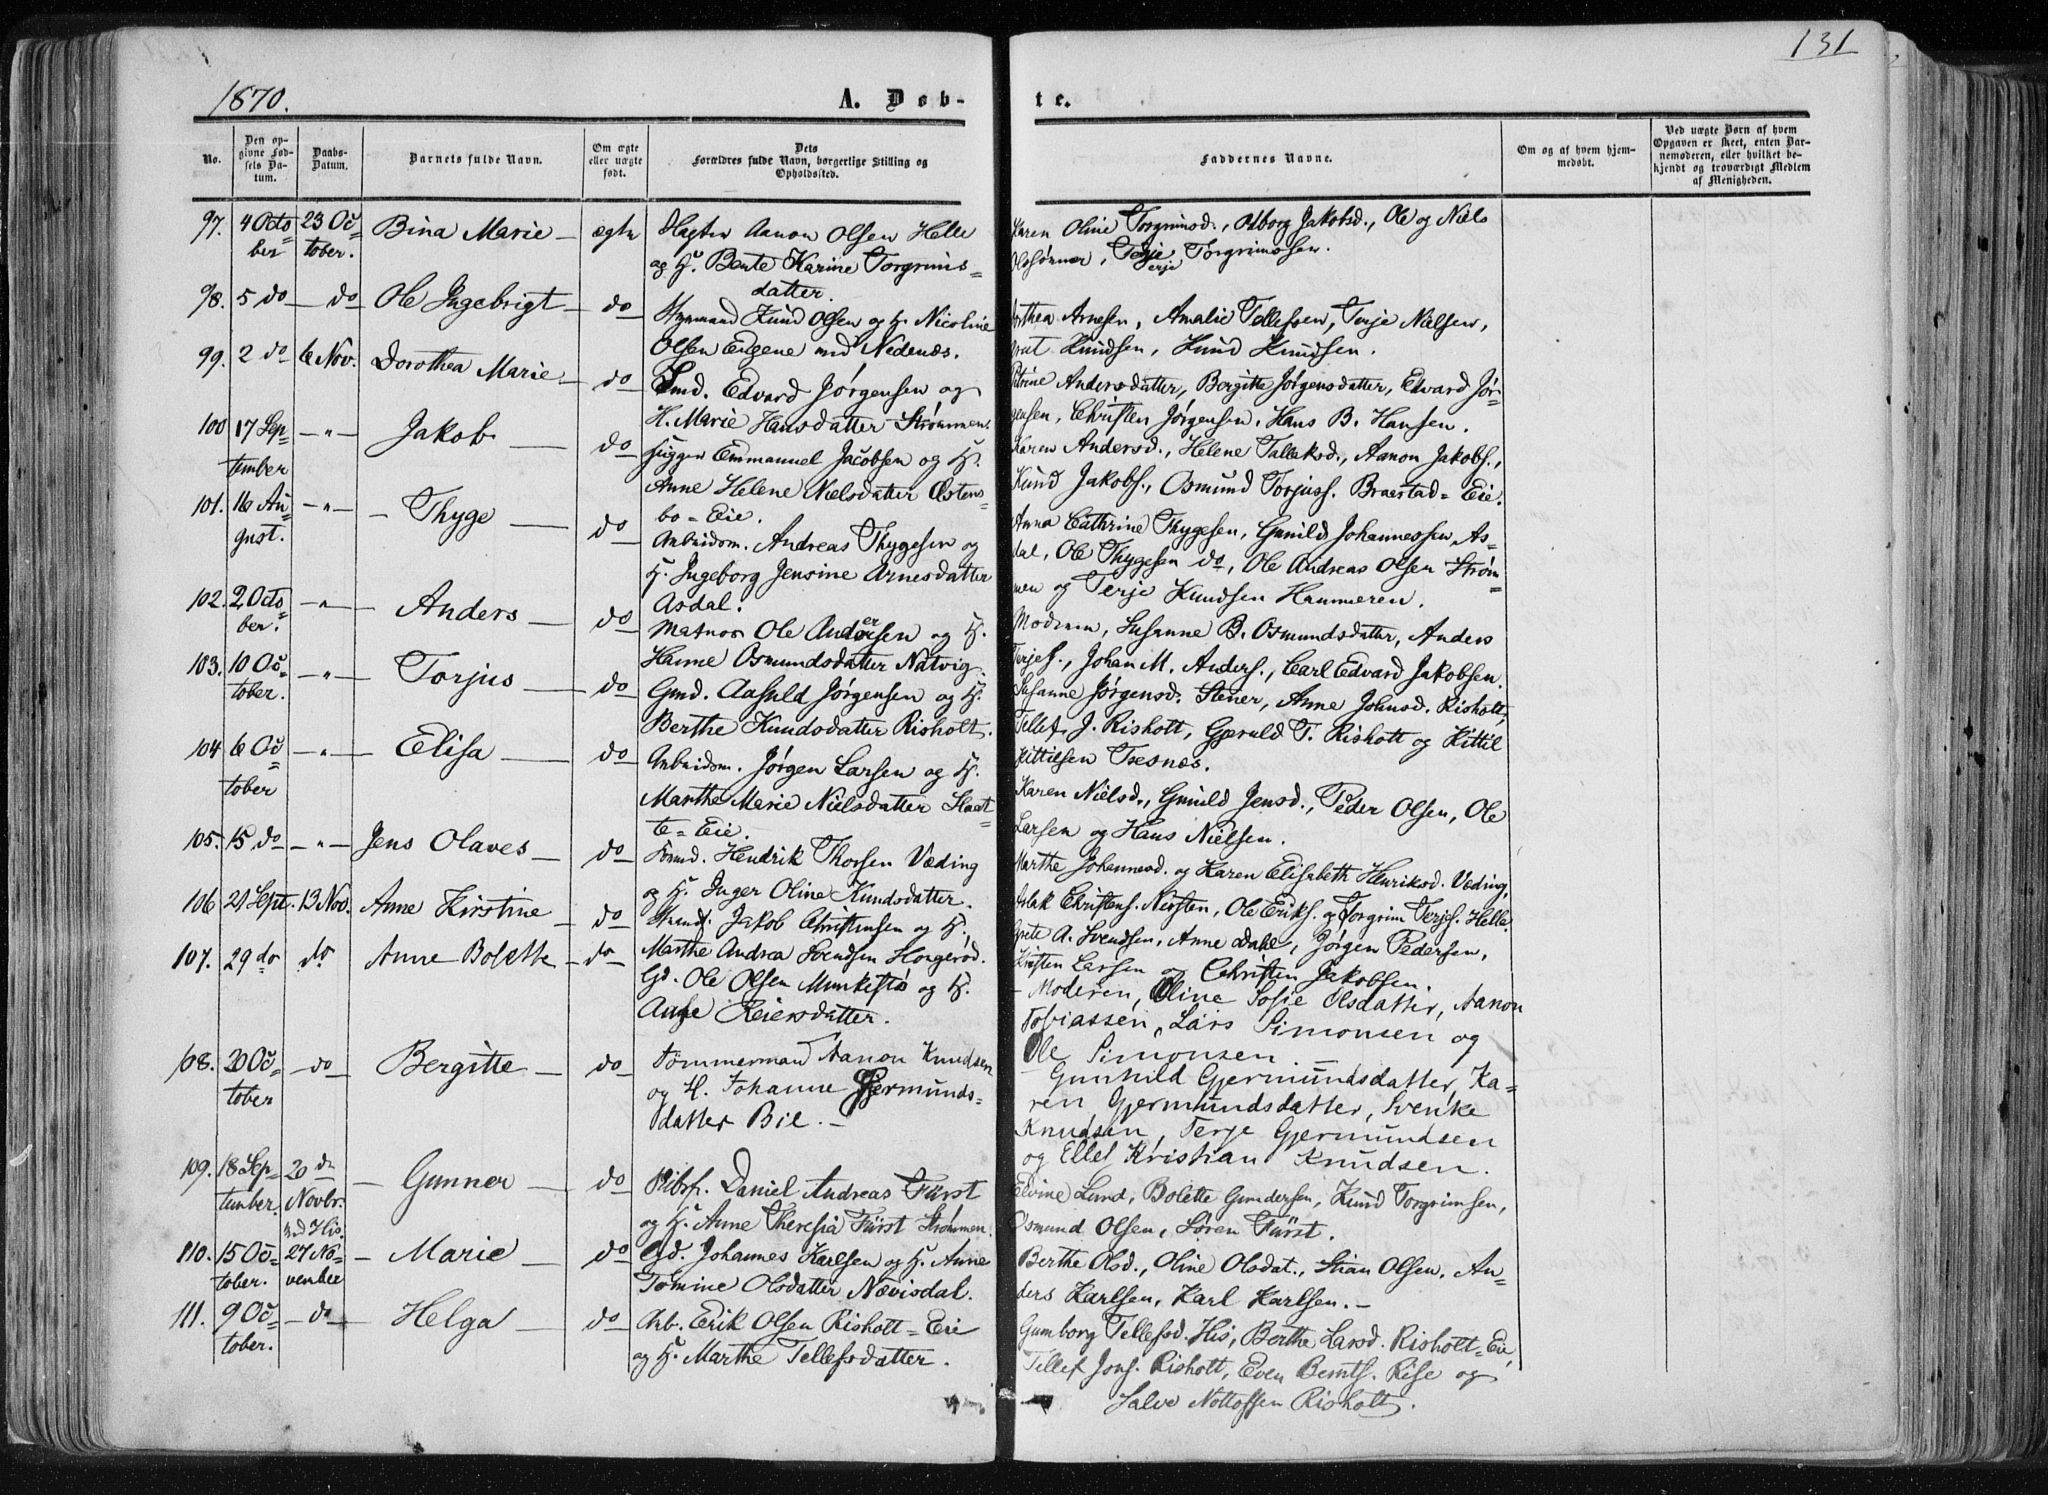 131
1870.
A. Døb-
te.
No.
Den op-
givne Fød-
sels Da-
tum.
Daabs-
Datum.
Barnets fulde Navn.
Om ægte
eller uægte
født.
Dets
Forældres fulde Navn, borgerlige Stilling og
Opholdssted.
Faddernes Navne.
Om og af hvem hjem-
medøbt.
Ved uægte Børn af hvem
Opgaven er skeet, enten Bar-
nemoderen, eller hvilket be-
kjendt og troværdigt Medlem
af Menigheden.
97. 4 Octo= 23 Oc= Bina Marie — ægte
ber tober.
Aanon Olsen Helle
og H. Bente Karine Torgrims=
datter.
Karen Oline Torgrimsd., Odborg Jakobsd., Ole og Niels
Olssønner, Terje Torgrimssen.
Terje
98. 5 do — do Ole Ingebrigt — do
Knud Olsen og H. Nicoline
Olsen Eugene ved Nedenæs.
Arnesen, Amalie Tellefsen, Terje Nielsen,
Knudsen, Knud Knudsen.
99. 2 do 6 Nov. Dorothea Marie — do
Smd. Edvard Jørgensen og
H. Marie Hansdatter Strømmen.
Andersdatter, Bergitte Jørgensdatter, Edvard Jør=
gensen, Christen Jørgensen, Hans B. Hansen.
100 17 Sep= — " — Jakob — do
tember
Emmanuel Jacobsen og H.
Anne Helene Nielsdatter Østens=
bo=Eie.
Karen Andersd., Helene Talleksd., Aanon Jakobs.,
Knud Jakobs., Osmund Torjuss. Braastad=Eie.
101. 16 Au= — " — Thyge — do
gust.
Arbeidsm. Andreas Thygesen og
H. Ingeborg Jensine Arnesdatter
Asdal.
Anna Cathrine Thygesen, Gunild Johannessen As=
dal, Ole Thygesen do, Ole Andreas Olsen Strøm=
men og Terje Knudsen Hammeren.
102. 2 Octo= — " — Anders — do
ber.
Matros Ole Andersen og H.
Hanne Osmundsdatter Natvig.
Moderen, Susanne B. Osmundsdatter, Anders
Terjes., Johan M. Anders., Carl Edvard Jakobsen.
103. 10 Oc= — " — Torjus — do
tober.
Gmd. Aasuld Jørgensen og H.
Berthe Knudsdatter Risholt.
Susanne Jørgensd. Stener, Anne Johnsd. Risholt,
Tellef J. Risholt, Gjeruld T. Risholt og Kittil
Kittilsen Tresnæs.
104 6 Oc= — " — Elisa — do
tober
Arbeidsm. Jørgen Larsen og H.
Marthe Marie Nielsdatter Slaat=
te=Eie.
Karen Nielsd., Gunild Jensd., Peder Olsen, Ole
Larsen og Hans Nielsen.
105. 15 do — " — Jens Olaves — do
Hendrik Thorsen Væding
og H. Inger Oline Knudsdatter.
Marthe Johannesd. og Karen Elisabeth Henriksd. Væding,
Aslak Christens. Nersten, Ole Eriks. og Torgrim Terjes. Helle.
106 21 Sept. 13 Nov. Anne Kirstine — do
Jakob Christensen og H.,
Marthe Andrea Svendsen Longerød.
Grete A. Svendsen, Anne Dahl, Jørgen Pedersen,
Kristen Larsen og Christen Jakobsen.
107. 29 do do Anne Bolette — do
Gd. Ole Olsen Munkestø og H.
Aase Reiersdatter.
— Moderen, Oline Sofie Olsdatter, Aanon
Tobiassen, Lars Simonsen og
Ole Simonsen.
108. 20 Oc= — do Bergitte — do
tober
Tømmermand Aanon Knudsen
og H. Johanne Gjermunds=
datter Bie. —
Gunhild Gjermundsdatter, Ka=
ren Gjermundsdatter, Svenke
Knudsen, Terje Gjermundsen
og Ellef Kristian Knudsen.
109. 18 Sep= 20 de — Gunner — do
tember. Novbr.
Daniel Andreas Fürst
og H. Anne Theresia Fürst Strømmen.
Elvine Lund, Bolette Gundersen, Knud Torgrimsen,
Osmund Olsen, Søren Fürst.
110. 15 Oc= 27 No= — Marie — do
tober. vember
Gd. Johannes Karlsen og H. Anne
Tomine Olsdatter Nævisdal.
Berthe Olsd., Oline Olsdat., Stian Olsen, An=
ders Karlsen, Karl Karlsen. —
111. 9 Oc= — do — Helga — do
tober.
Arb. Erik Olsen Risholt=Eie
og H. Marthe Tellefsdatter.
Gumborg Tellefsd. His, Berthe Larsd. Risholt=Eie,
Tellef Jons. Risholt, Even Bernts. Rise og
Salve Nottolfsen Risholt.